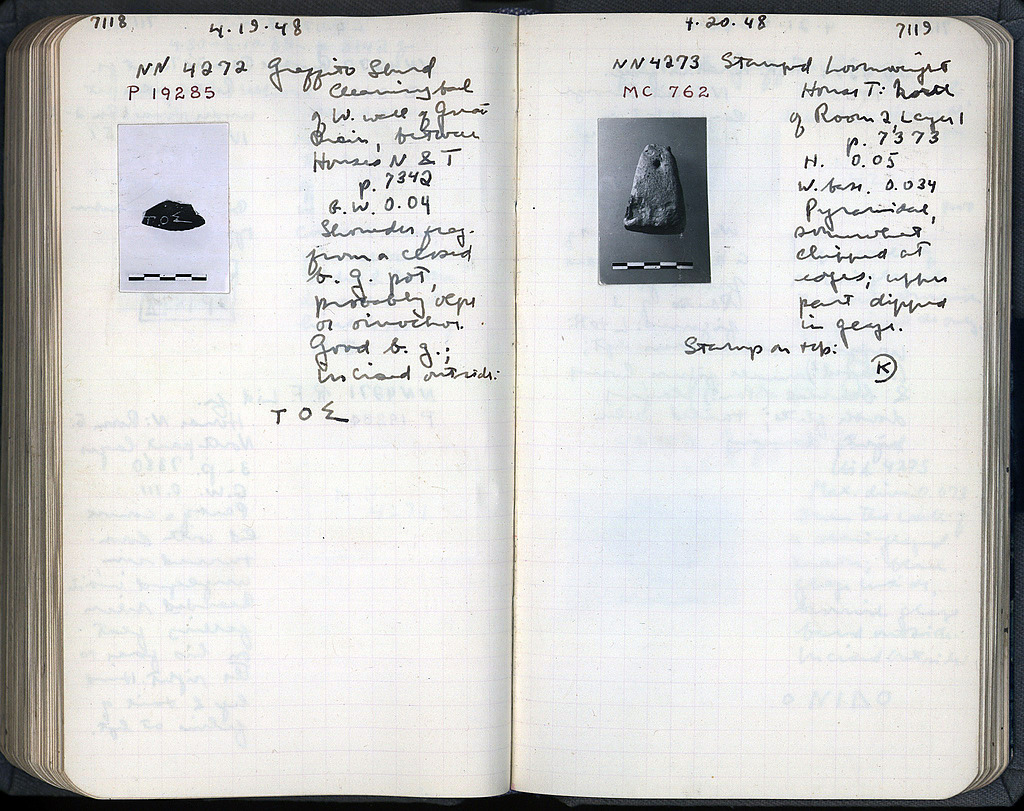 7118
4.19.48
NN 4272 Graffito Sherd
P 19285
Cleaning bal
of W. wall of Great
Drain, between
Houses N & T
p. 7342
G.W. 0.04
Shoulder frag.
from a closed
b. g. pot,
probably olpe
or oinochoe.
Good b. g.;
Incised outside:
Τ Ο Σ
ΤΟΣ
4.20.48
7119
NN4273 Stamped Loomweight
MC 762
House T: North
of Room 2, Layer 1
p. 7373
H. 0.05
W. base. 0.034
Pyramidal,
somewhat
chipped at
edges; upper
part dipped
in glaze.
Stamp on top:
K